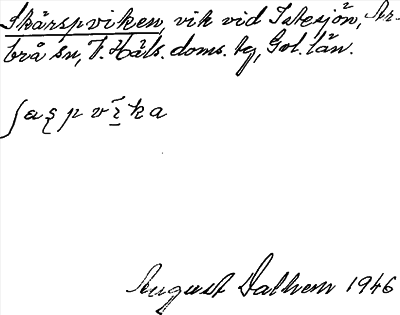 Skärspviken, vik vid Istesjön, Ar-
brå sn, V. Häls. doms. bg, Gvl. län.
ʃaʂpvika
August Dalhem 1946